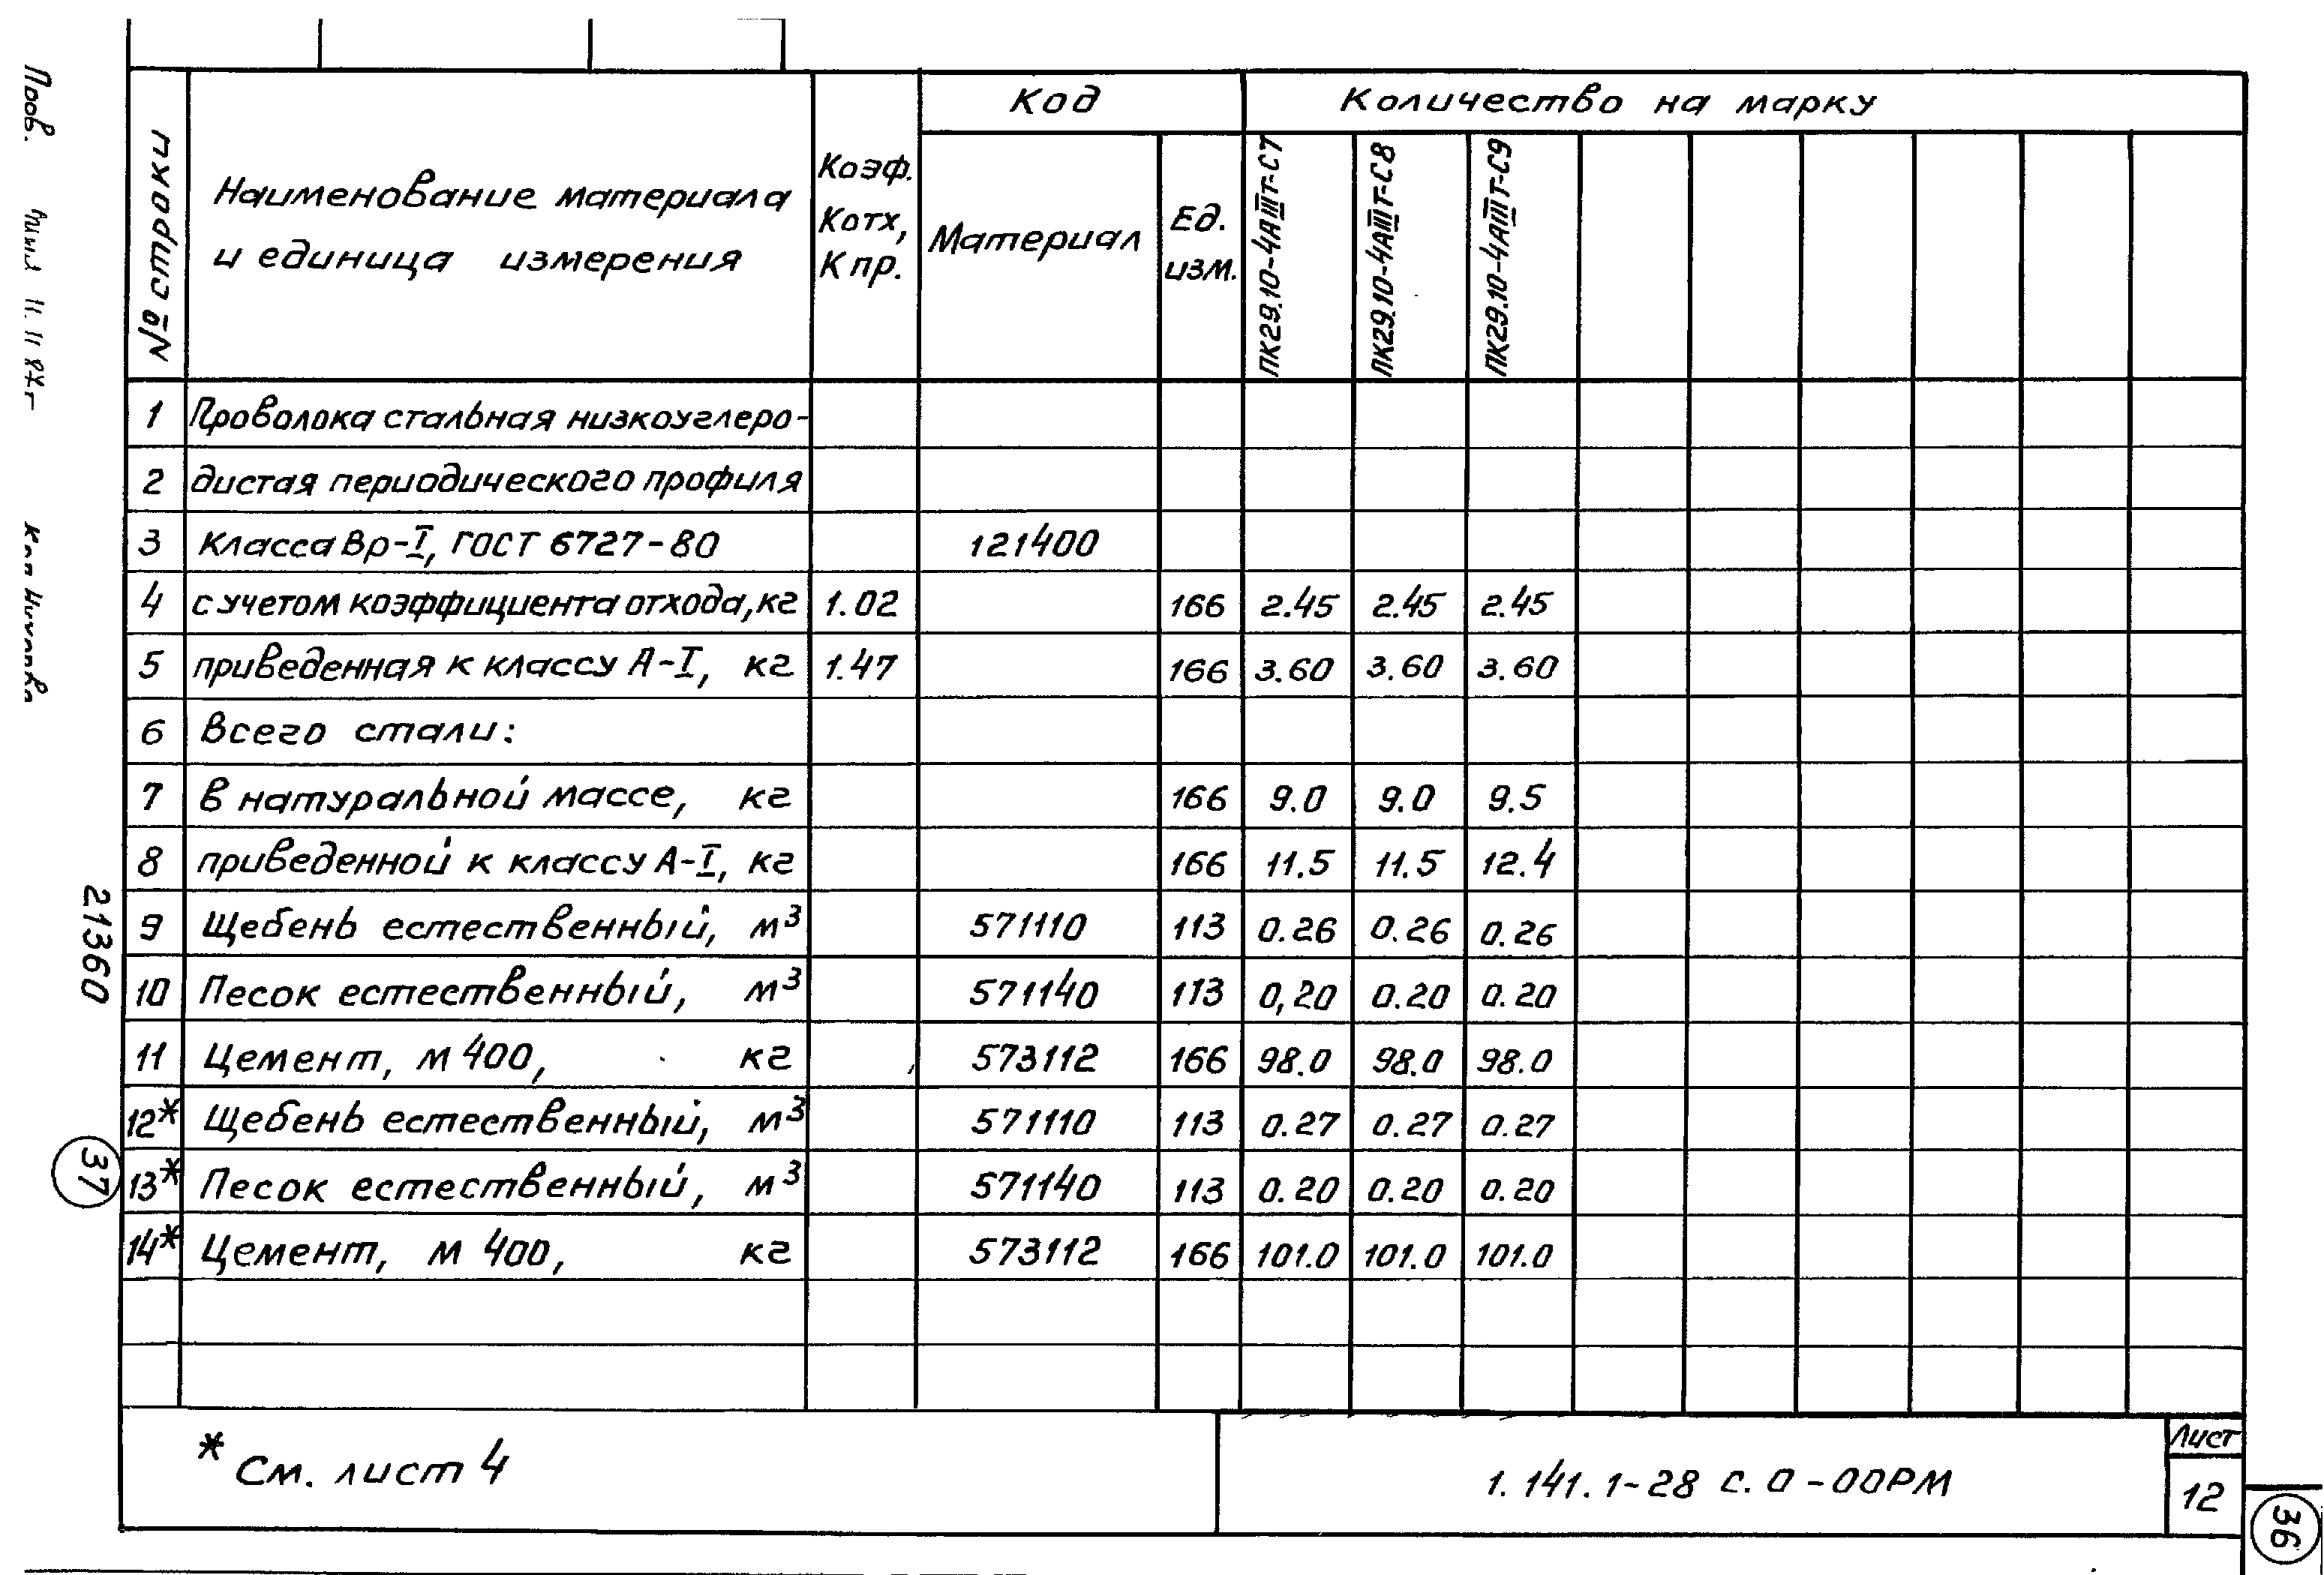 № строки
Наименование материала
и единица измерения
Коэф.
Котх,
Кпр.
Код
Материал
Ед.
изм.
Количество на марку
ПК29.10-4АIIIт-С7
ПК29.10-4АIIIт-С8
ПК29.10-4АIIIт-С9
1 Проволока стальная низкоуглеро-
2 дистая периодического профиля
3 класса Вр-I, ГОСТ 6727-80 121400
4 с учетом коэффициента отхода, кг 1.02 166 2.45 2.45 2.45
5 приведенная к классу А-I, кг 1.47 166 3.60 3.60 3.60
6 Всего стали:
7 в натуральной массе, кг 166 9.0 9.0 9.5
8 приведенной к классу А-I, кг 166 11.5 11.5 12.4
9 Щебень естественный, м³ 571110 113 0.26 0.26 0.26
10 Песок естественный, м³ 571140 113 0,20 0.20 0.20
11 Цемент, м 400, кг 573112 166 98.0 98.0 98.0
12* Щебень естественный, м³ 571110 113 0.27 0.27 0.27
13* Песок естественный, м³ 571140 113 0.20 0.20 0.20
14* Цемент, м 400, кг 573112 166 101.0 101.0 101.0
* См. лист 4
1.141.1-28 с.0-00РМ
Лист
12
Пров.
21360
37
36